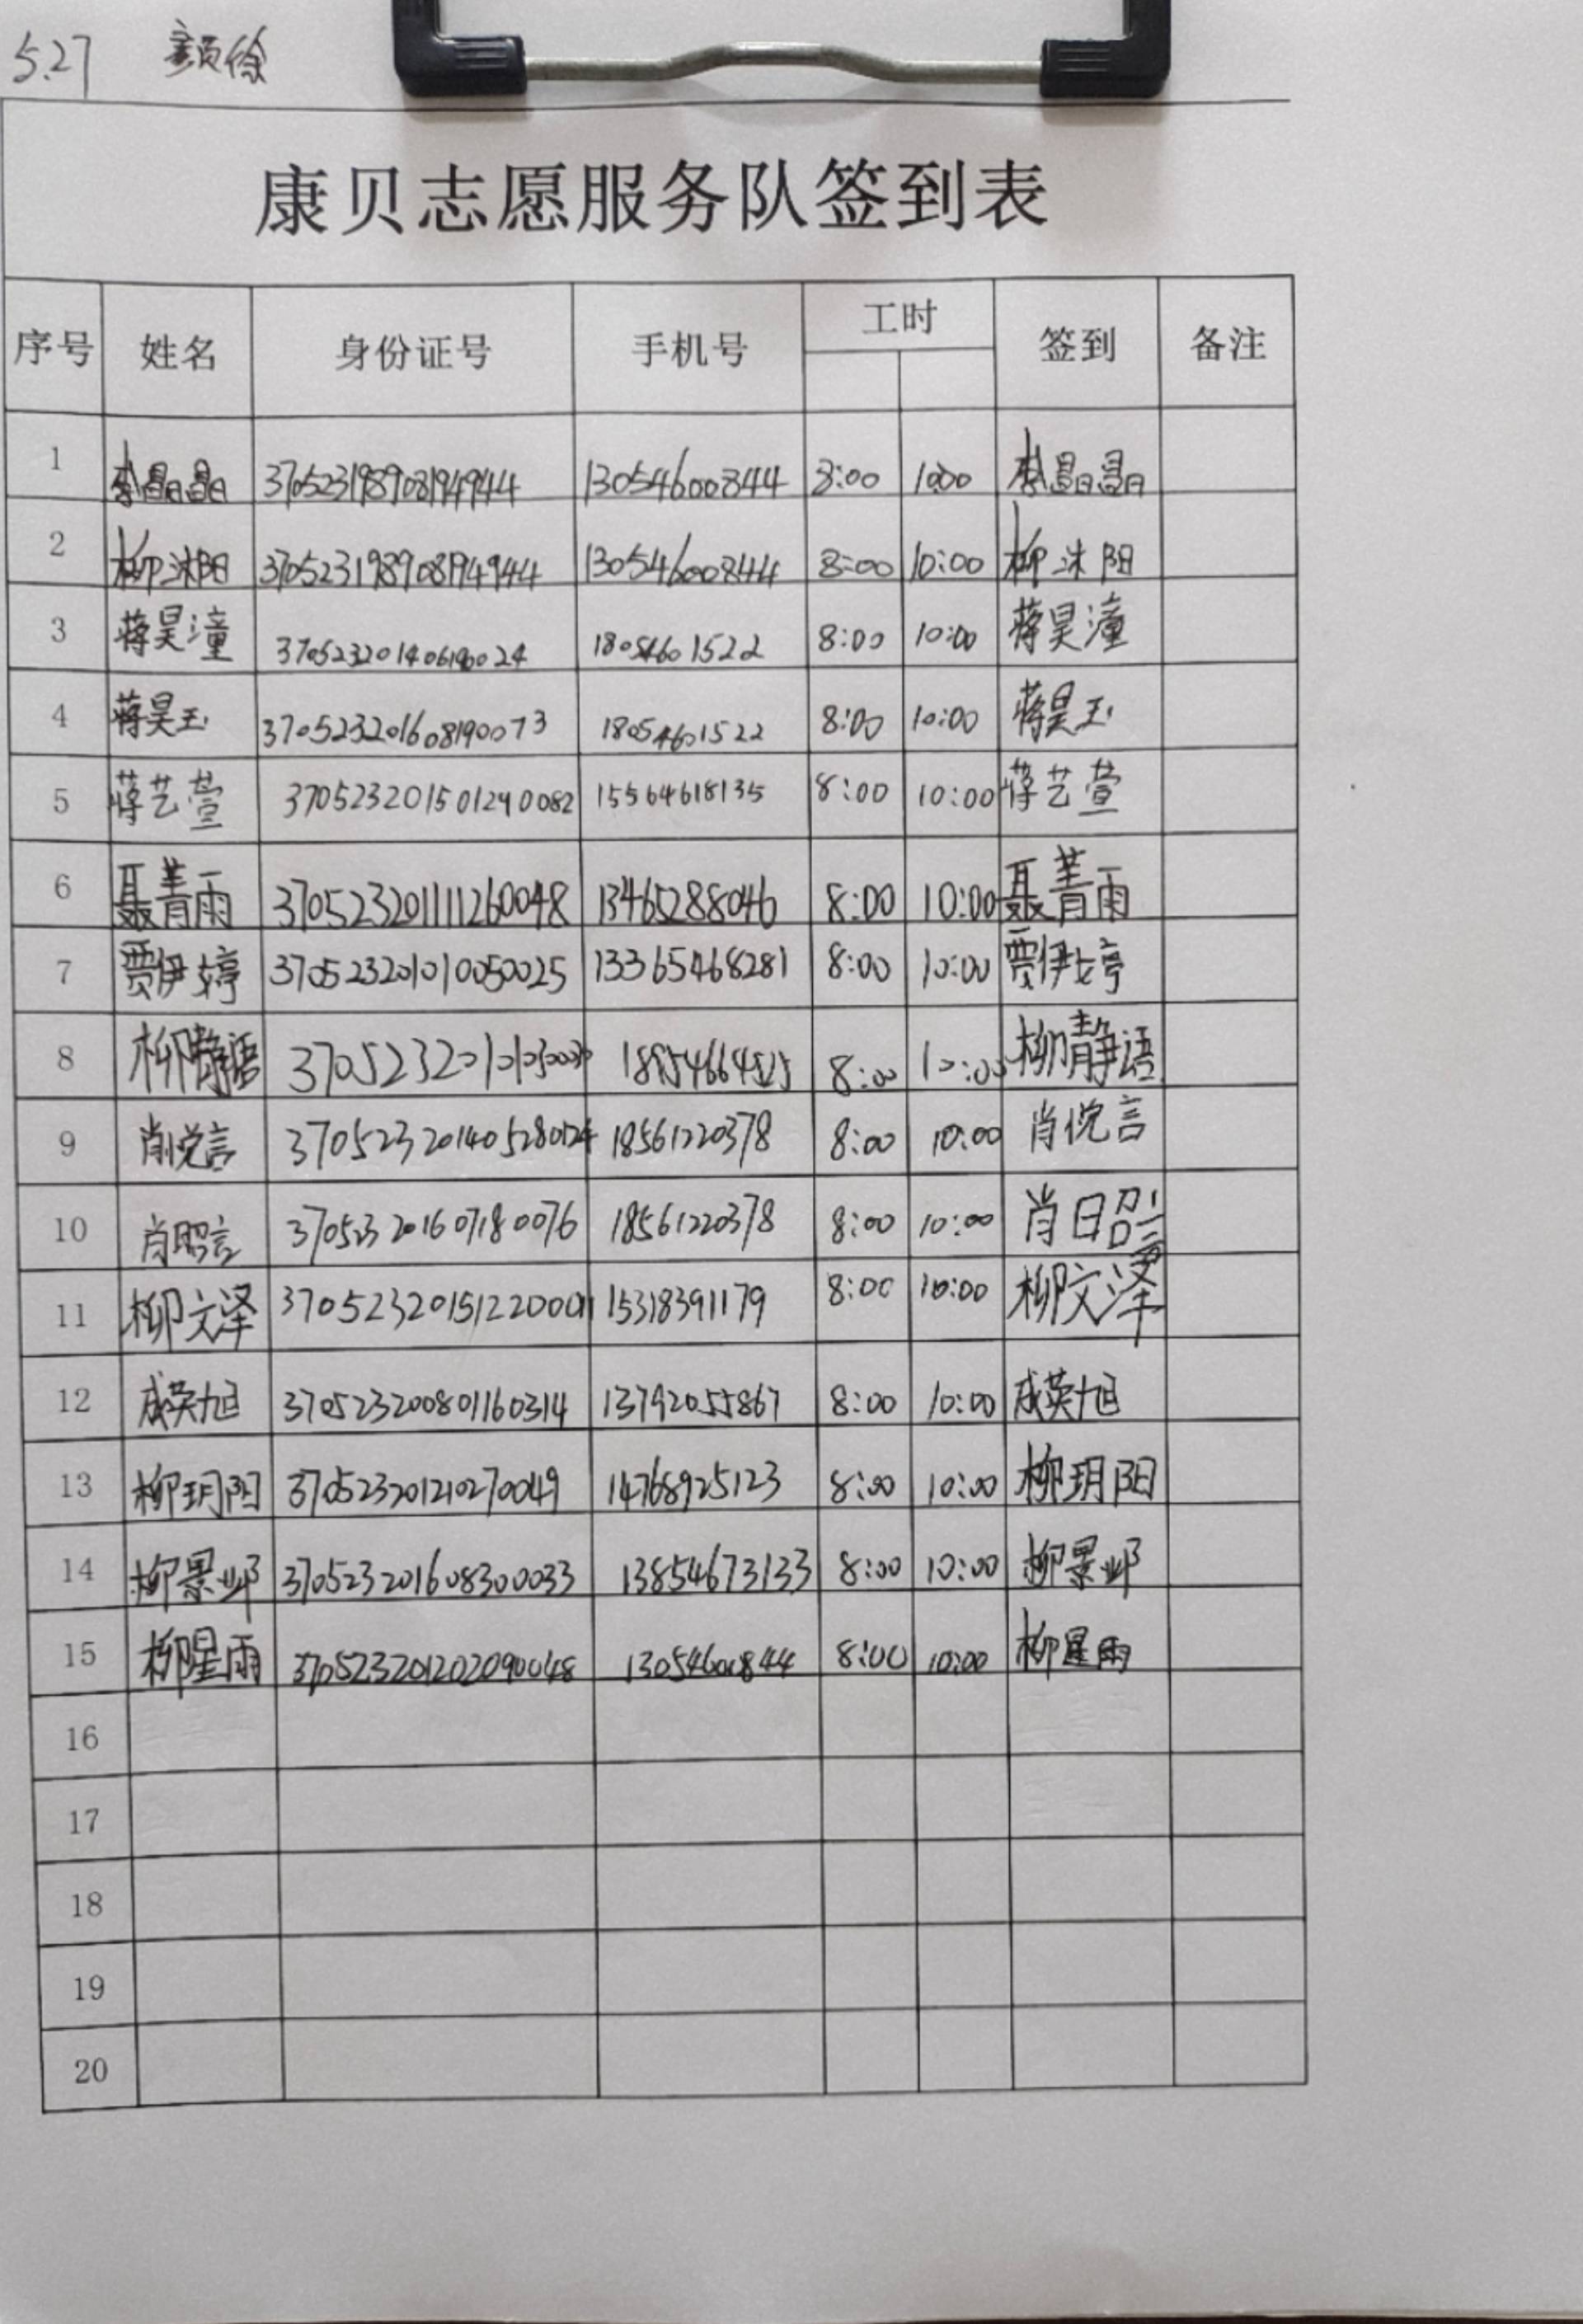 5.27 颜徐
康贝志愿服务队签到表
序号 姓名 身份证号 手机号 工时 签到 备注
1 李晶晶 370523198908194944 13054600844 8:00 10:00 李晶晶
2 柳沭阳 370523198908194944 13054600844 8:00 10:00 柳沭阳
3 蒋昊潼 370523201406190024 18054601522 8:00 10:00 蒋昊潼
4 蒋昊玉 370523201608190073 18054601522 8:00 10:00 蒋昊玉
5 蒋艺萱 370523201501290082 15564618135 8:00 10:00 蒋艺萱
6 聂菁雨 370523201111260048 13465288046 8:00 10:00 聂菁雨
7 贾伊婷 370523201010050025 13365468281 8:00 10:00 贾伊婷
8 柳静语 8:00 10:00 柳静语
9 肖悦言 370523201405280124 18561220378 8:00 10:00 肖悦言
10 肖昭言 370523201607180076 18561220378 8:00 10:00 肖昭言
11 柳文泽 15318391179 8:00 10:00 柳文泽
12 成英旭 370523200801160314 13792055867 8:00 10:00 成英旭
13 柳玥阳 370523201210270049 14768925123 8:00 10:00 柳玥阳
14 柳景邺 370523201608300033 13854673133 8:00 10:00 柳景邺
15 柳星雨 370523201202090048 13054600844 8:00 10:00 柳星雨
16
17
18
19
20